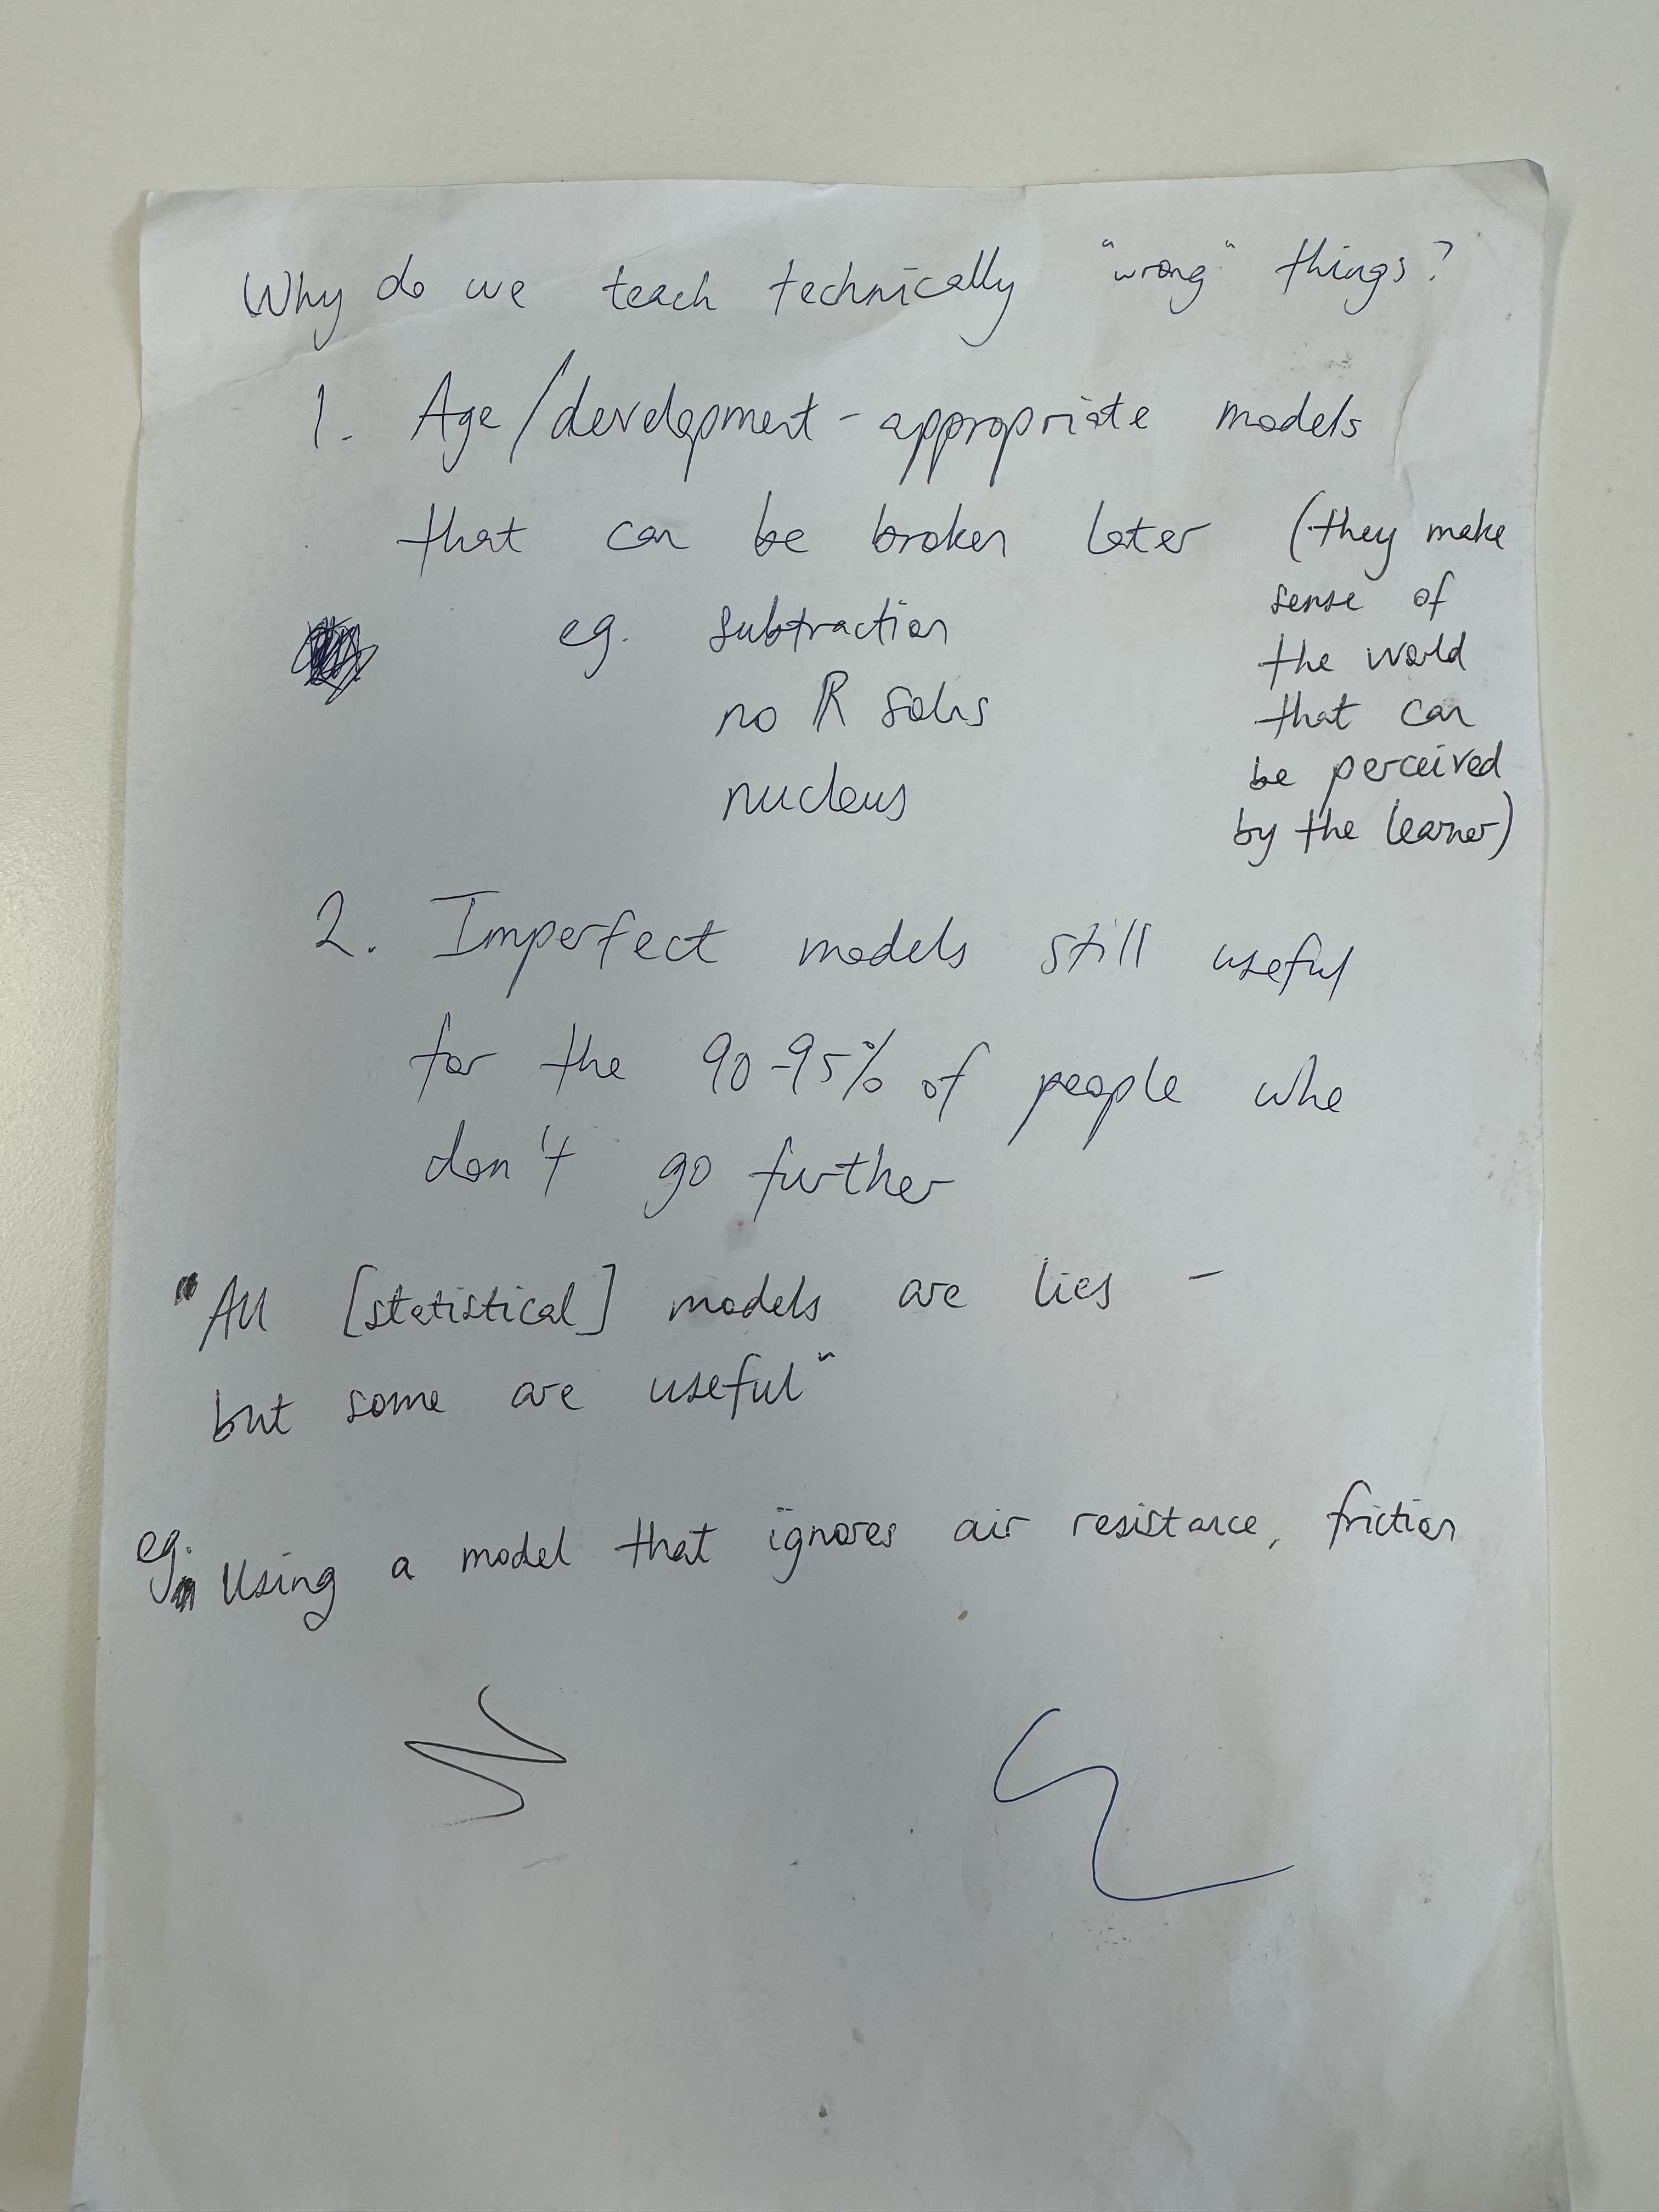 Why do we teach technically "wrong" things?
1. Age/development-appropriate models
that can be broken later
(they make
sense of
the world
that can
be perceived
by the learner)
eg. subtraction
no ℝ solns
nucleus
2. Imperfect models still useful
for the 90-95% of people who
don't go further
"All [statistical] models are lies -
but some are useful"
eg. Using a model that ignores air resistance, friction